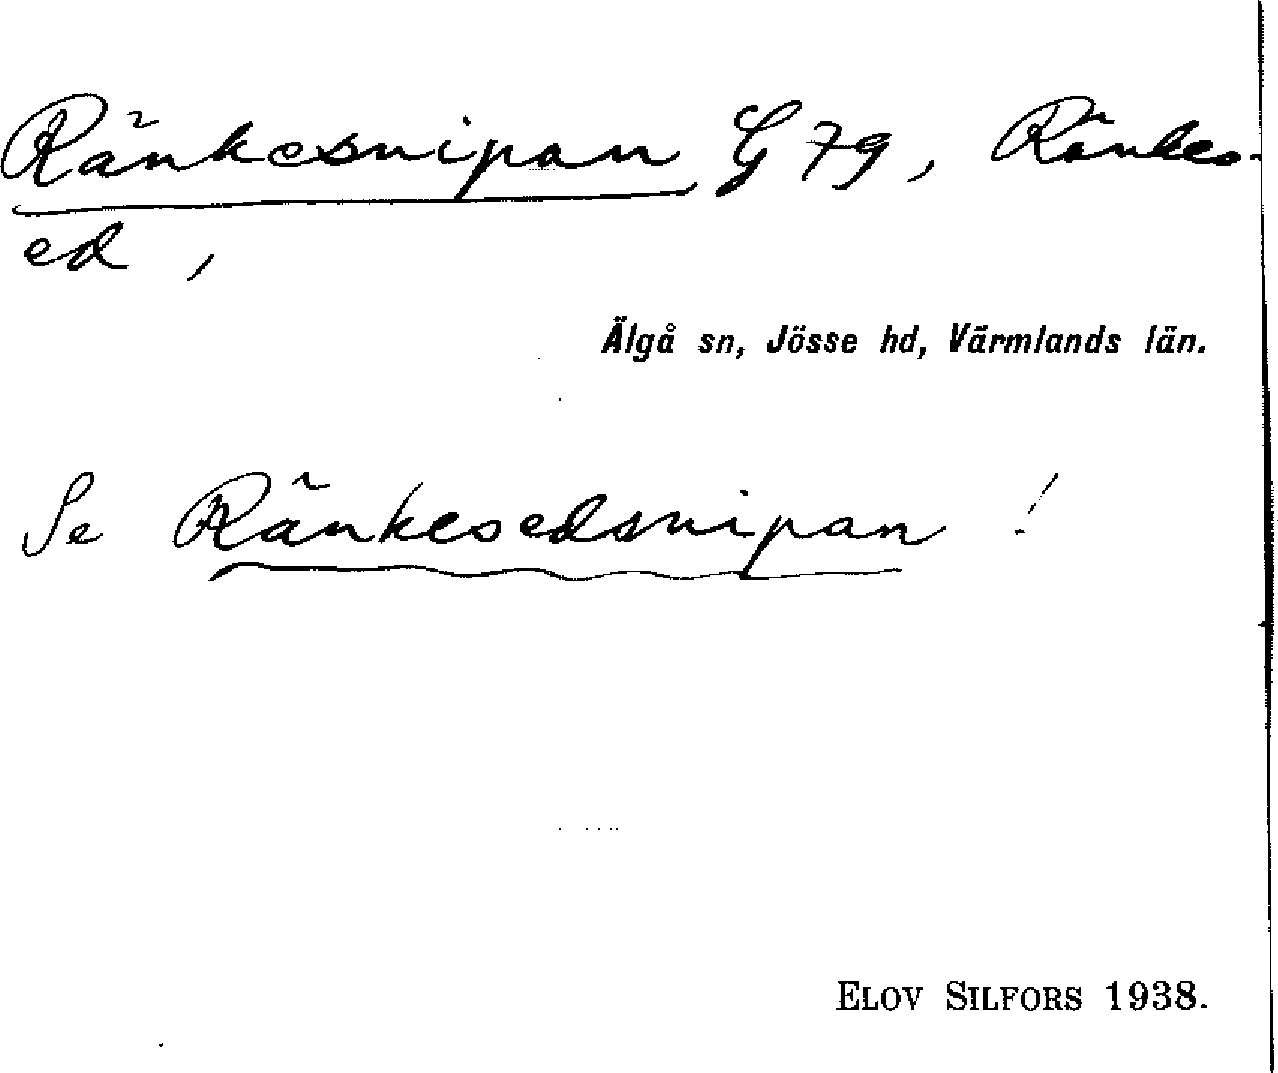 Ränkesnipan G 79, Ränkes-
ed,
Älgå sn, Jösse hd, Värmlands län.
Se Ränkesedsnipan !
ELOV SILFORS 1938.